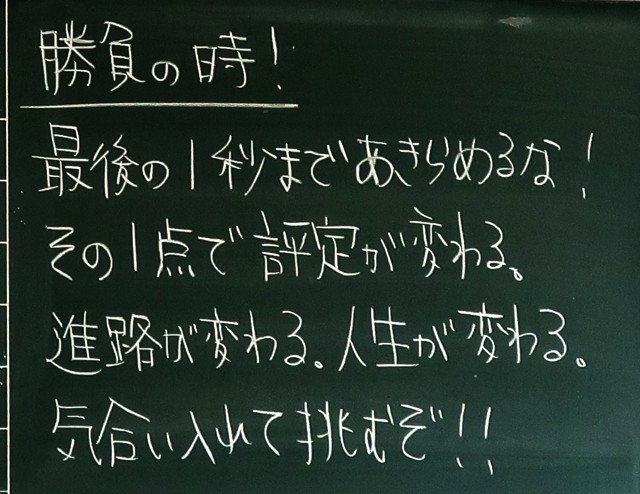 勝負の時!
最後の1秒まであきらめるな!
その1点で評定が変わる。
進路が変わる。人生が変わる。
気合い入れて挑むぞ!!